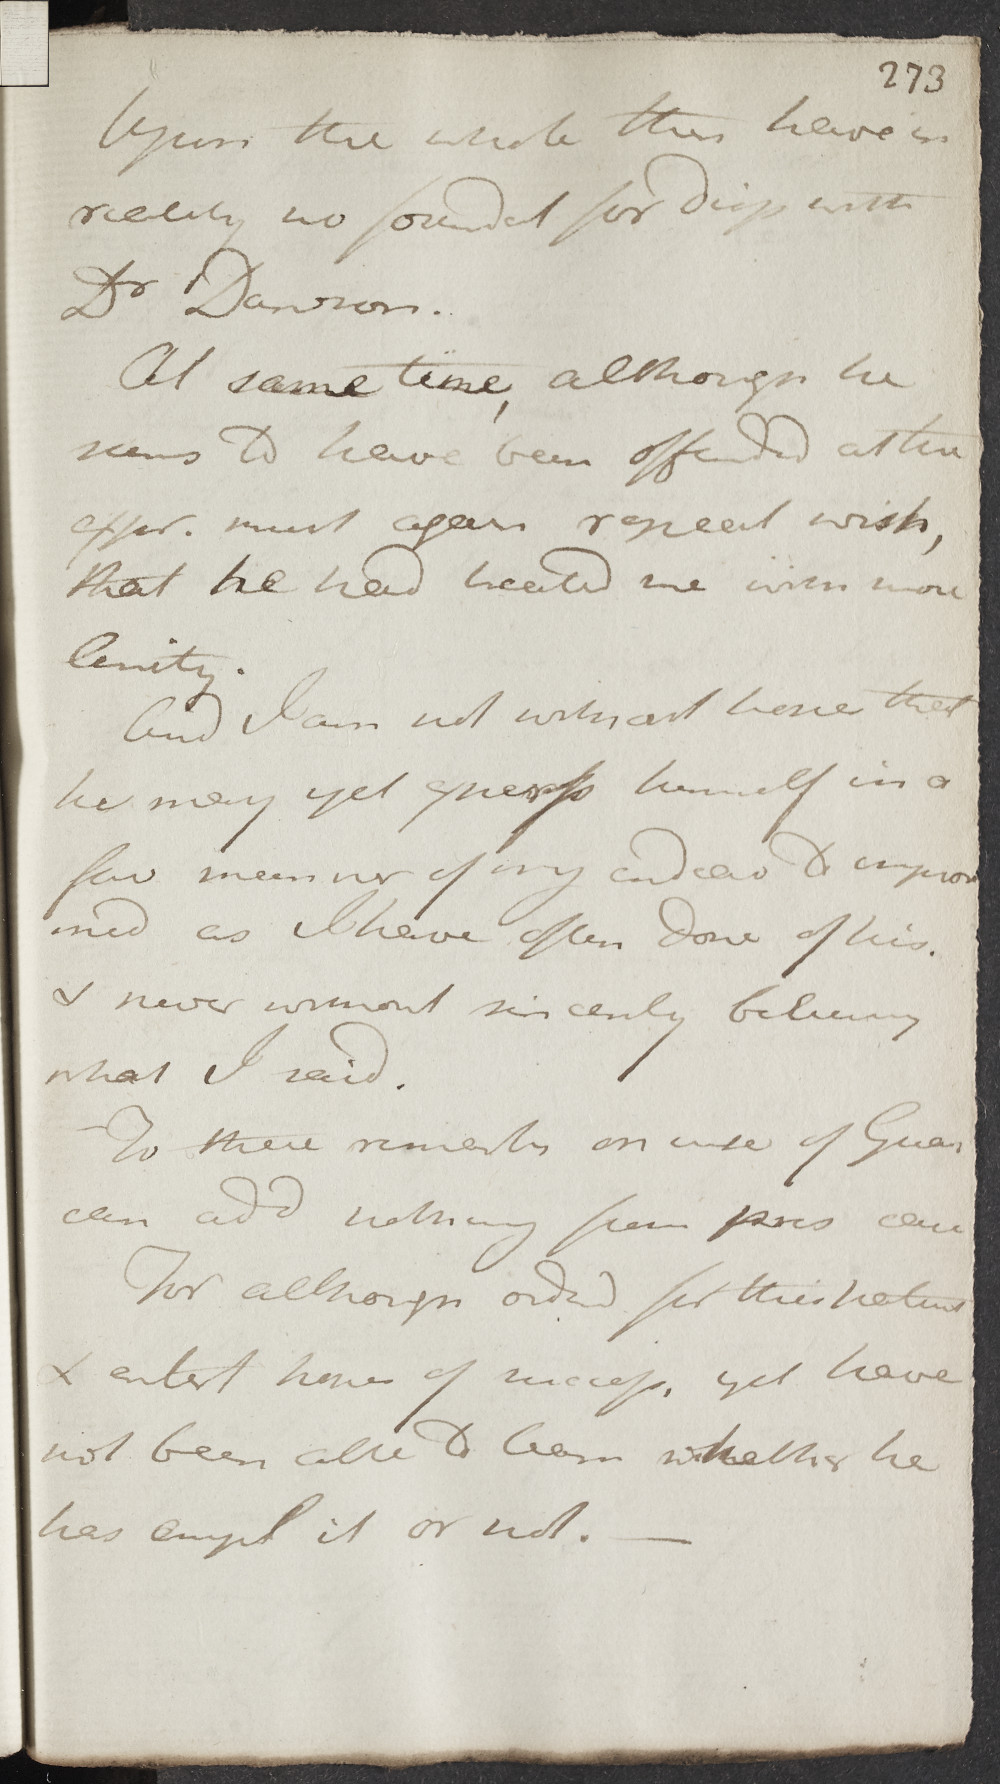 273
Upon the whole then have in
reality no foundat for disp with
Dr Dawson.
At same time, although he
seems to have been offended at the
must again repeat wish,
that he had treated me with more
lenity.
And I am not without hopes that
he may yet express himself in a
fav manner of my endeav to improve
med as I have often done of his.
& never without sincerely believing
what I said.
To these remarks on use of Guai
can add nothing from pres case
For although ordered for this patient
& entert hopes of success, yet have
not been able to learn whether he
has empl it or not. —